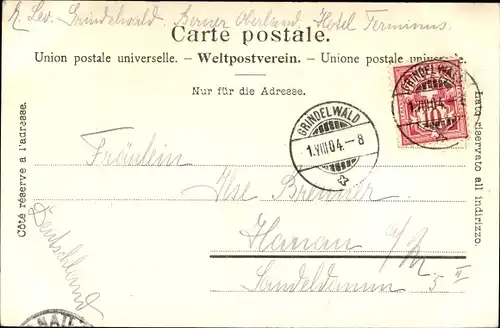 Z. Lev. Grindelwald. Berner Oberland. Hotel Terminus.
Carte postale.
Union postale universelle. - Weltpostverein. - Unione postale universale.
Nur für die Adresse.
Côté réservé à l'adresse.
Lato riservato all indirizzo.
GRINDELWALD
1.VIII.04.-8
GRINDELWALD
1.VIII.04.-
10
Fräulein
Ilse Brenner
Hanau a/M.
5 II
Deutschland
HANAU